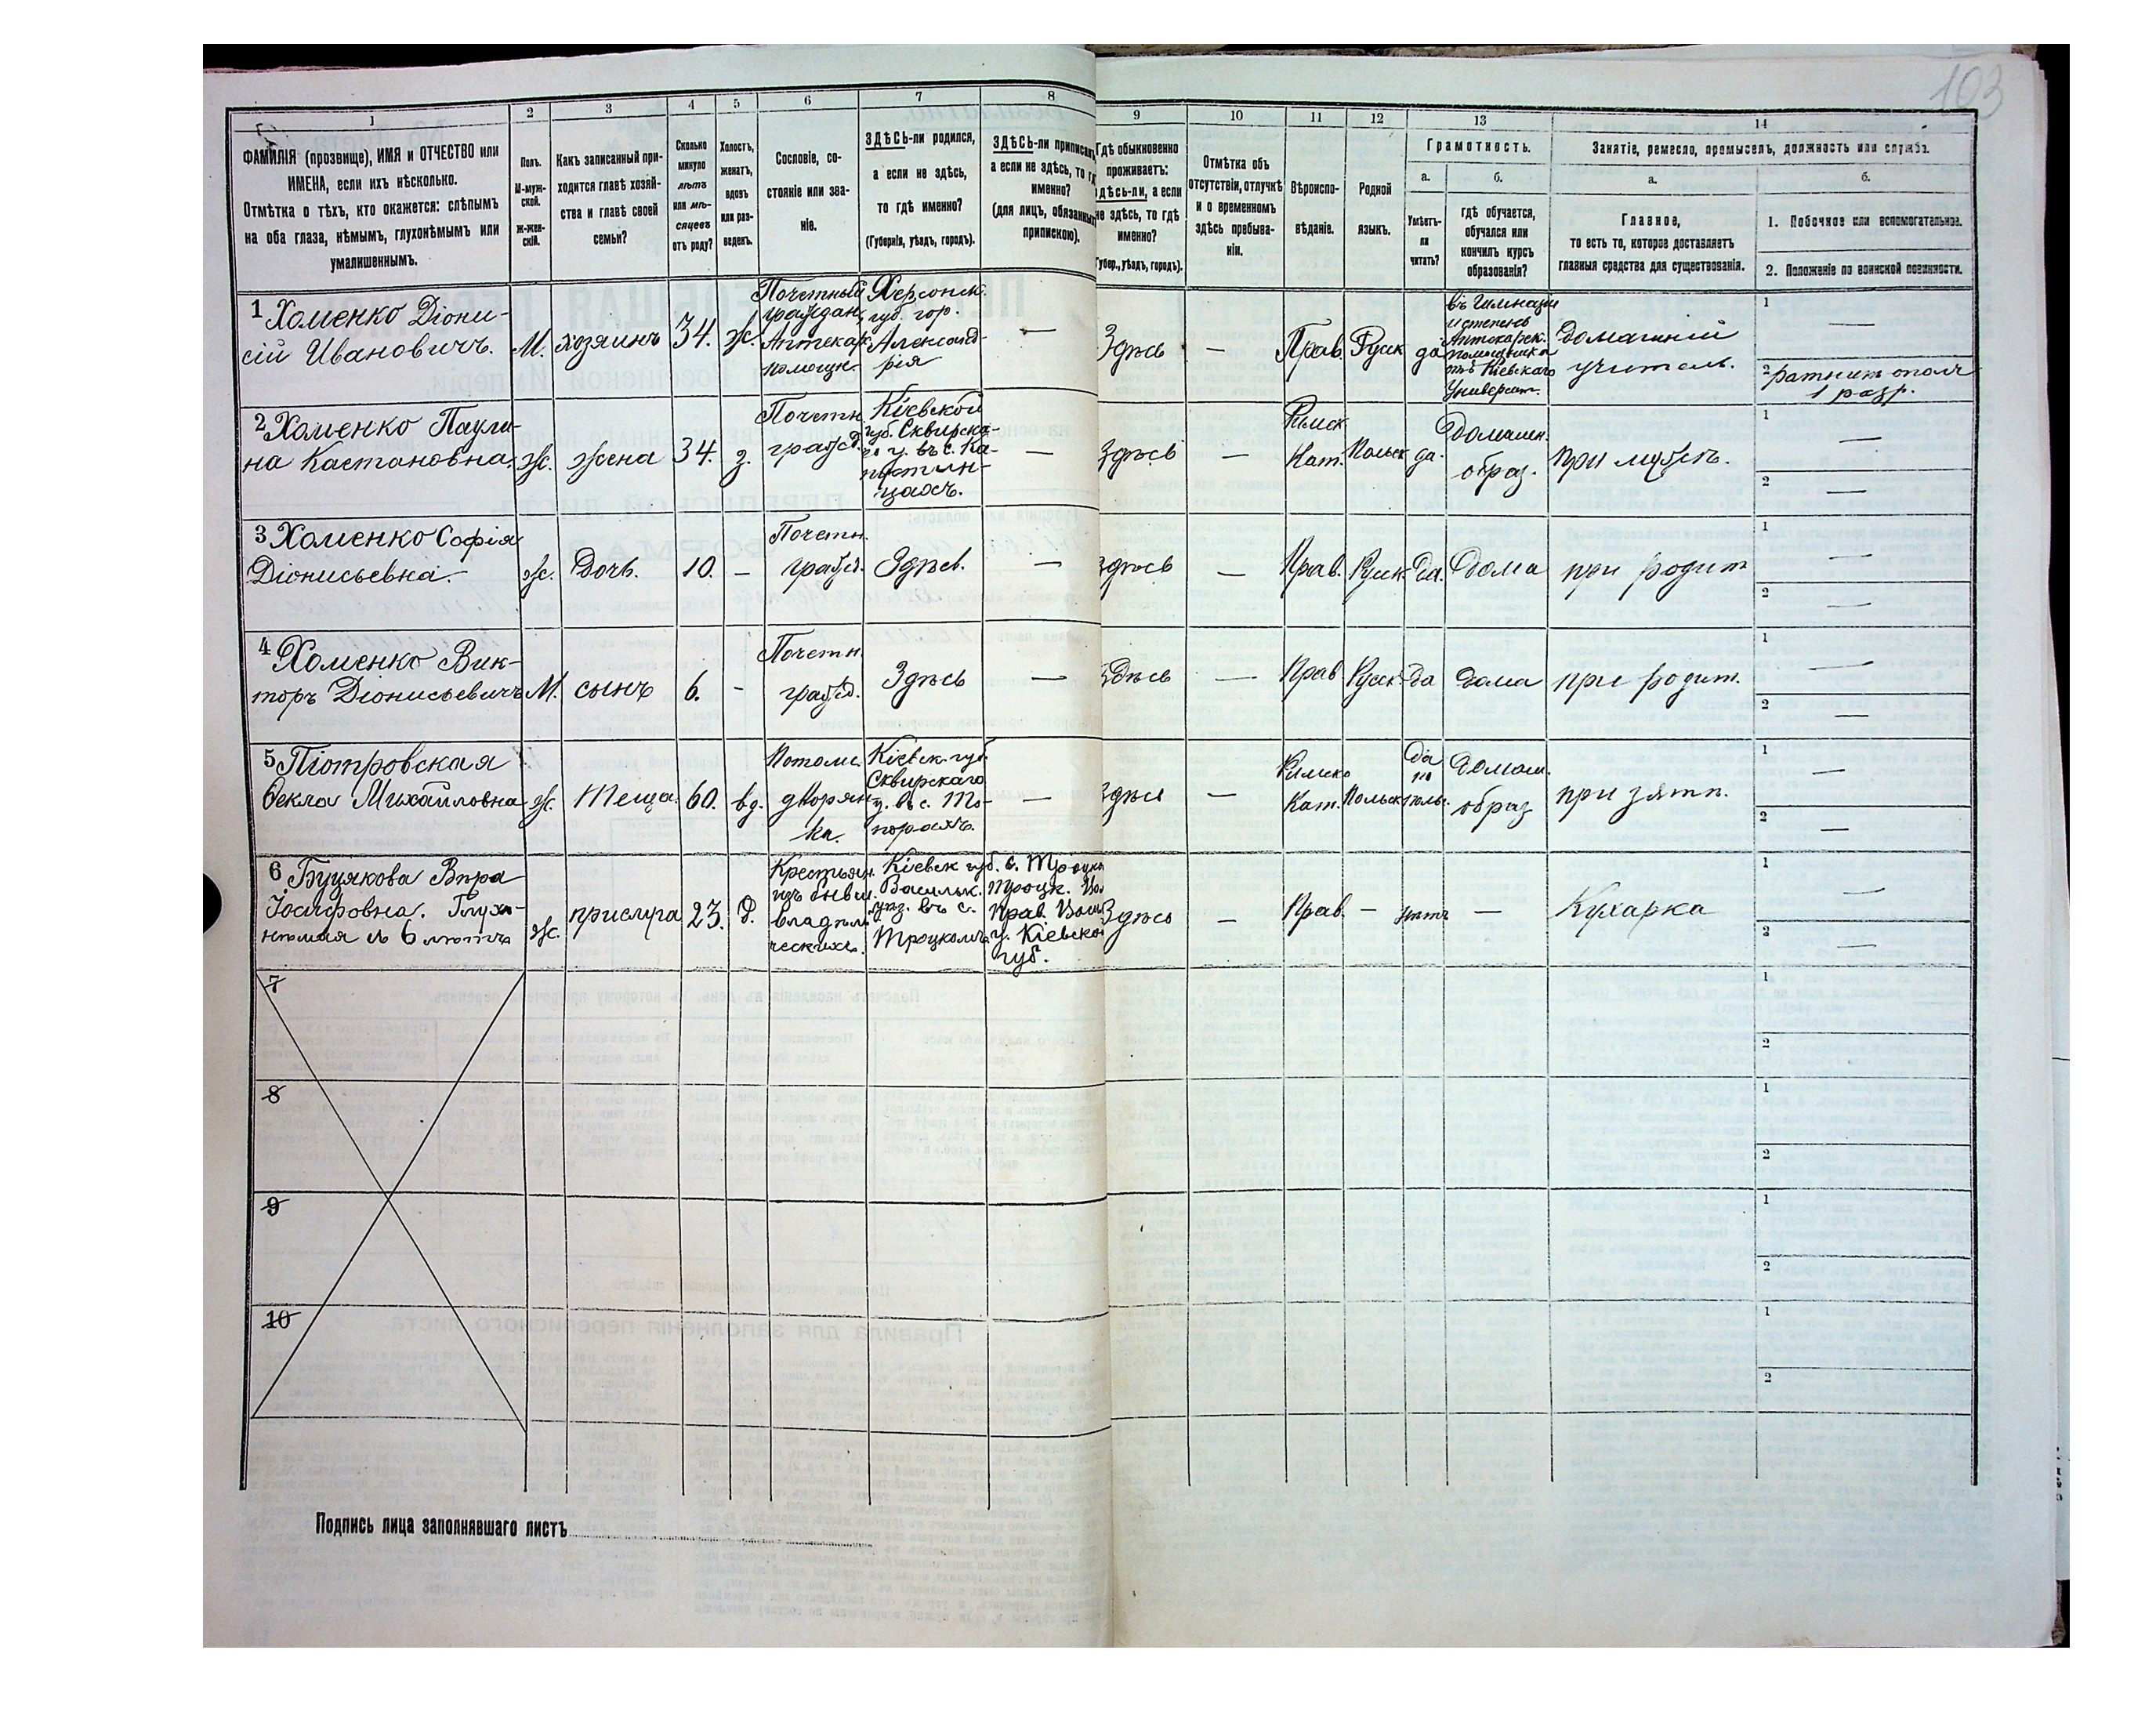 103
1
2
3
4
5
6
7
8
9
10
11
12
13
14
ФАМИЛІЯ (прозвище), ИМЯ и ОТЧЕСТВО или
ИМЕНА, если ихъ нѣсколько.
Отмѣтка о тѣхъ, кто окажется: слѣпымъ
на оба глаза, нѣмымъ, глухонѣмымъ или
умалишеннымъ.
Полъ.
М-муж-
ской.
Ж-жен-
скій.
Какъ записанный при-
ходится главѣ хозяй-
ства и главѣ своей
семьи?
Сколько
минуло
лѣтъ
или мѣ-
сяцевъ
отъ роду?
Холостъ,
женатъ,
вдовъ
или раз-
веденъ.
Сословіе, со-
стояніе или зва-
ніе.
ЗДѢСЬ-ли родился,
а если не здѣсь,
то гдѣ именно?
(Губернія, уѣздъ, городъ).
ЗДѢСЬ-ли приписанъ,
а если не здѣсь, то гдѣ
именно?
(для лицъ, обязанныхъ
припискою).
Гдѣ обыкновенно
проживаетъ:
здѣсь-ли, а если
не здѣсь, то гдѣ
именно?
(Губер., уѣздъ, городъ).
Отмѣтка объ
отсутствіи, отлучкѣ
и о временномъ
здѣсь пребыва-
ніи.
Вѣроиспо-
вѣданіе.
Родной
языкъ.
Грамотность.
а.
б.
Умѣетъ-
ли
читать?
гдѣ обучается,
обучался или
кончилъ курсъ
образованія?
Занятіе, ремесло, промыселъ, должность или служба.
а.
б.
Главное,
то есть то, которое доставляетъ
главныя средства для существованія.
1. Побочное или вспомогательное.
2. Положеніе по воинской повинности.
1 Хоменко Діони-
сій Ивановичъ.
М.
хозяинъ
34.
ж.
Почетный
граждан.
Аптекар.
помощн.
Херсонск.
губ. гор.
Александ-
рія
—
Здѣсь
—
Прав.
Русск
да
въ Гимназіи
и степень
Аптекарск.
помощника
отъ Кіевскаго
Университ.
Домашній
учитель.
1 —
2 ратникъ опол
1 разр.
2 Хоменко Паули-
на Каетановна.
Ж.
жена
34.
з.
Почетн.
гражд.
Кіевской
губ. Сквирска-
го у. въ с. Ка-
—
Здѣсь
—
Римск
Кат.
Польск
да.
Домашн.
образ.
при мужѣ.
1 —
2 —
3 Хоменко Софія
Діонисьевна.
ж.
Дочь.
10.
—
Почетн.
гражд.
Здѣсь.
—
Здѣсь
—
Прав.
Русск.
Да.
Дома
при родит
1 —
2 —
4 Хоменко Вик-
торъ Діонисьевичъ
М.
сынъ
6.
-
Почетн.
гражд.
Здѣсь
—
Здѣсь
—
Прав
Русск.
да
дома
при родит.
1 —
2 —
5 Піотровская
Ѳекла Михайловна
ж.
Теща.
60.
вд.
Потомс.
дворян-
ка.
Кіевск. губ.
Сквирскаго
у. въ с. То-
порахъ.
—
Здѣсь
—
Римско
Кат.
Польск
Да
по
польс.
Домаш.
образ
при зятѣ.
1 —
2 —
6 Буцякова Вѣра
Іосифовна. Глухо-
нѣмая съ 6 лѣтъ
ж.
прислуга
23.
д.
Крестьян.
изъ бывш.
владѣль-
ческихъ.
Кіевск губ.
Васильк.
уѣз. въ с.
Троцкомъ
с. Троцк
Троцк. Вол
Прав. Васил.
у. Кіевской
губ.
Здѣсь
—
Прав.
—
нѣтъ
—
Кухарка
1 —
2 —
7
1
2
8
1
2
9
1
2
10
1
2
Подпись лица заполнявшаго листъ